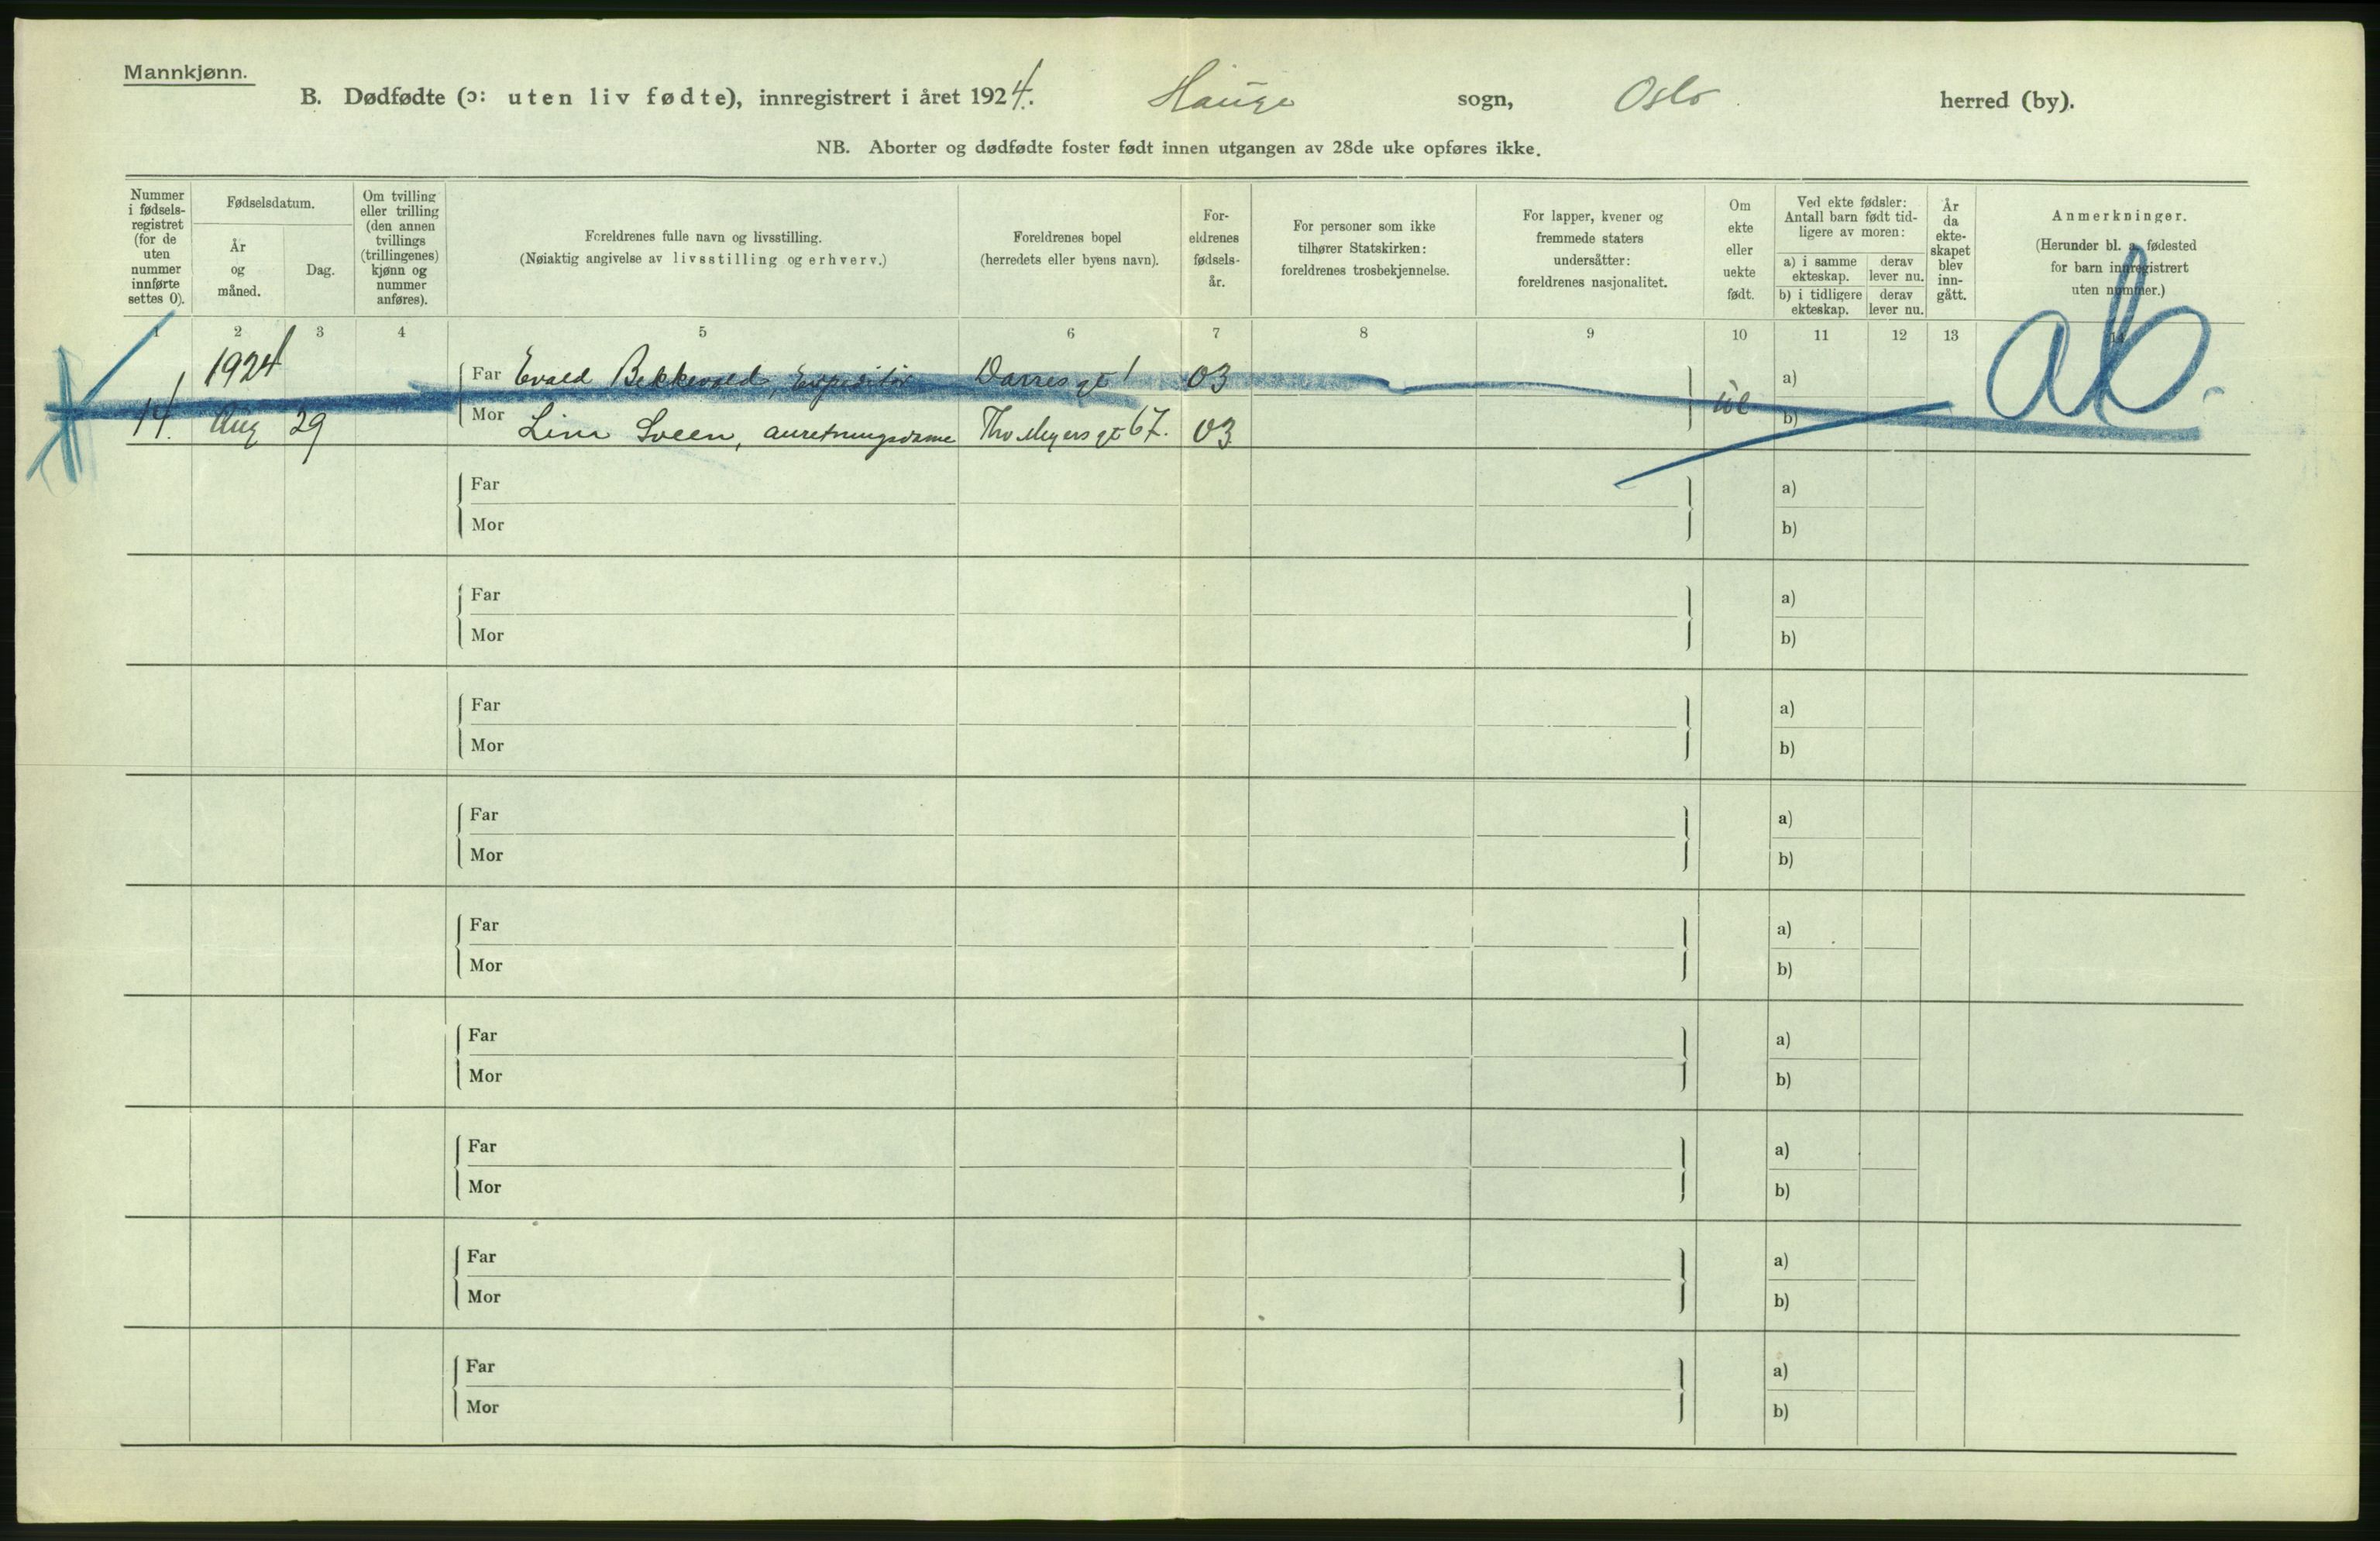 Mannkjønn.
B. Dødfødte (ɔ: uten liv fødte), innregistrert i året 1924. Hauge sogn, Oslo herred (by).
NB. Aborter og dødfødte foster født innen utgangen av 28de uke opføres ikke.
Nummer i fødsels-registret (for de uten nummer innførte settes 0).
Fødselsdatum.
År og måned.
Dag.
Om tvilling eller trilling (den annen tvillings (trillingenes) kjønn og nummer anføres).
Foreldrenes fulle navn og livsstilling.
(Nøiaktig angivelse av livsstilling og erhverv.)
Foreldrenes bopel
(herredets eller byens navn).
For-eldrenes fødsels-år.
For personer som ikke tilhører Statskirken: foreldrenes trosbekjennelse.
For lapper, kvener og fremmede staters undersåtter: foreldrenes nasjonalitet.
Om ekte eller uekte født.
Ved ekte fødsler: Antall barn født tid-ligere av moren:
a) i samme ekteskap. derav lever nu.
b) i tidligere ekteskap. derav lever nu.
År da ekte-skapet blev inn-gått.
Anmerkninger.
(Herunder bl. a. fødested for barn innregistrert uten nummer.)
1 2 3 4 5 6 7 8 9 10 11 12 13 14
1924
Far Evald Bekkevold, Expeditør Darres gt 1 03 a)
14. Aug 29 ue b) ab.
Mor Lina Sveen, anretningsdame Thv Meyers gt 67. 03
Far a)
Mor b)
Far a)
Mor b)
Far a)
Mor b)
Far a)
Mor b)
Far a)
Mor b)
Far a)
Mor b)
Far a)
Mor b)
Far a)
Mor b)
Far a)
Mor b)